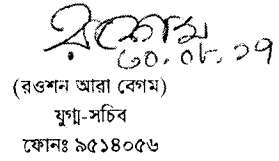 ৩০.০৮.১৭
(রওশন আরা বেগম)
যুগ্ম-সচিব
ফোনঃ ৯৫১৪০৫৬